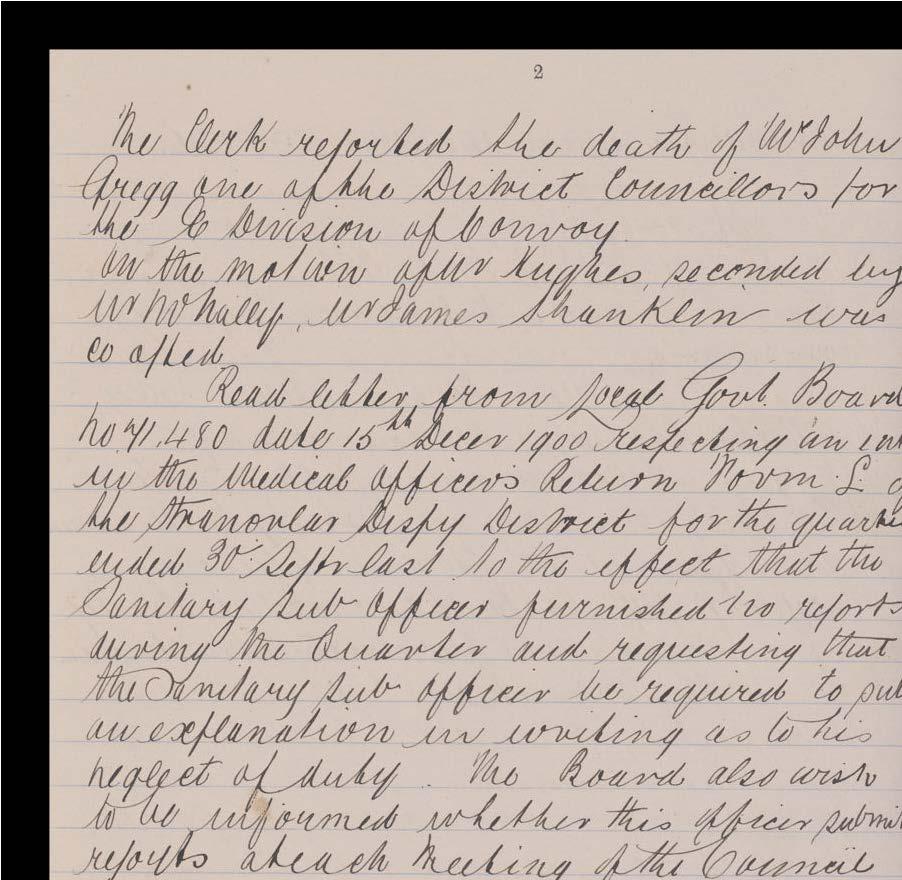 2
The Clerk reported the death of Mr John
Gregg one of the District Councillors for
the E Division of Convoy.
On the motion of Mr Hughes, seconded by
Mr McNulty, Mr James Shanklin was
co opted
Read letter from Local Govt. Board
No 71.480 date 15th Decer 1900 respecting an
in the Medical Officers Return Form L
the Stranorlar Dispy District for the quarter
ended 30th Septr last to the effect that the
Sanitary Sub Officer furnished no reports
during the Quarter and requesting that
the Sanitary Sub Officer be required to
an explanation in writing as to his
neglect of duty. The Board also wish
to be informed whether this officer submit
reports at each Meeting of the Council